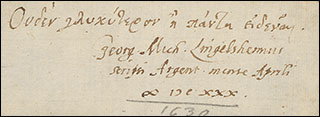 Οὐδὲν γλυκύτερον ἢ πάντα εἰδέναι.
Georg Mich. Lingelshemius
scripsi Argent. mense Aprili
ↀ IↃC XXX.
1630